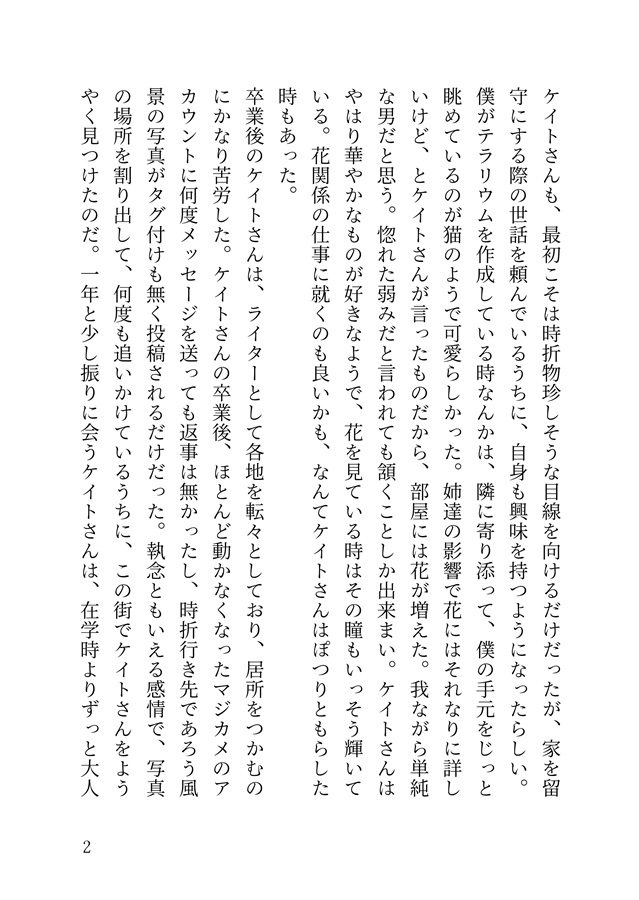 ケイトさんも、最初こそは時折物珍しそうな目線を向けるだけだったが、家を留
守にする際の世話を頼んでいるうちに、自身も興味を持つようになったらしい。
僕がテラリウムを作成している時なんかは、隣に寄り添って、僕の手元をじっと
眺めているのが猫のようで可愛らしかった。姉達の影響で花にはそれなりに詳し
いけど、とケイトさんが言ったものだから、部屋には花が増えた。我ながら単純
な男だと思う。惚れた弱みだと言われても頷くことしか出来まい。ケイトさんは
やはり華やかなものが好きなようで、花を見ている時はその瞳もいっそう輝いて
いる。花関係の仕事に就くのも良いかも、なんてケイトさんはぽつりともらした
時もあった。
卒業後のケイトさんは、ライターとして各地を転々としており、居所をつかむの
にかなり苦労した。ケイトさんの卒業後、ほとんど動かなくなったマジカメのア
カウントに何度メッセージを送っても返事は無かったし、時折行き先であろう風
景の写真がタグ付けも無く投稿されるだけだった。執念ともいえる感情で、写真
の場所を割り出して、何度も追いかけているうちに、この街でケイトさんをよう
やく見つけたのだ。一年と少し振りに会うケイトさんは、在学時よりずっと大人
2